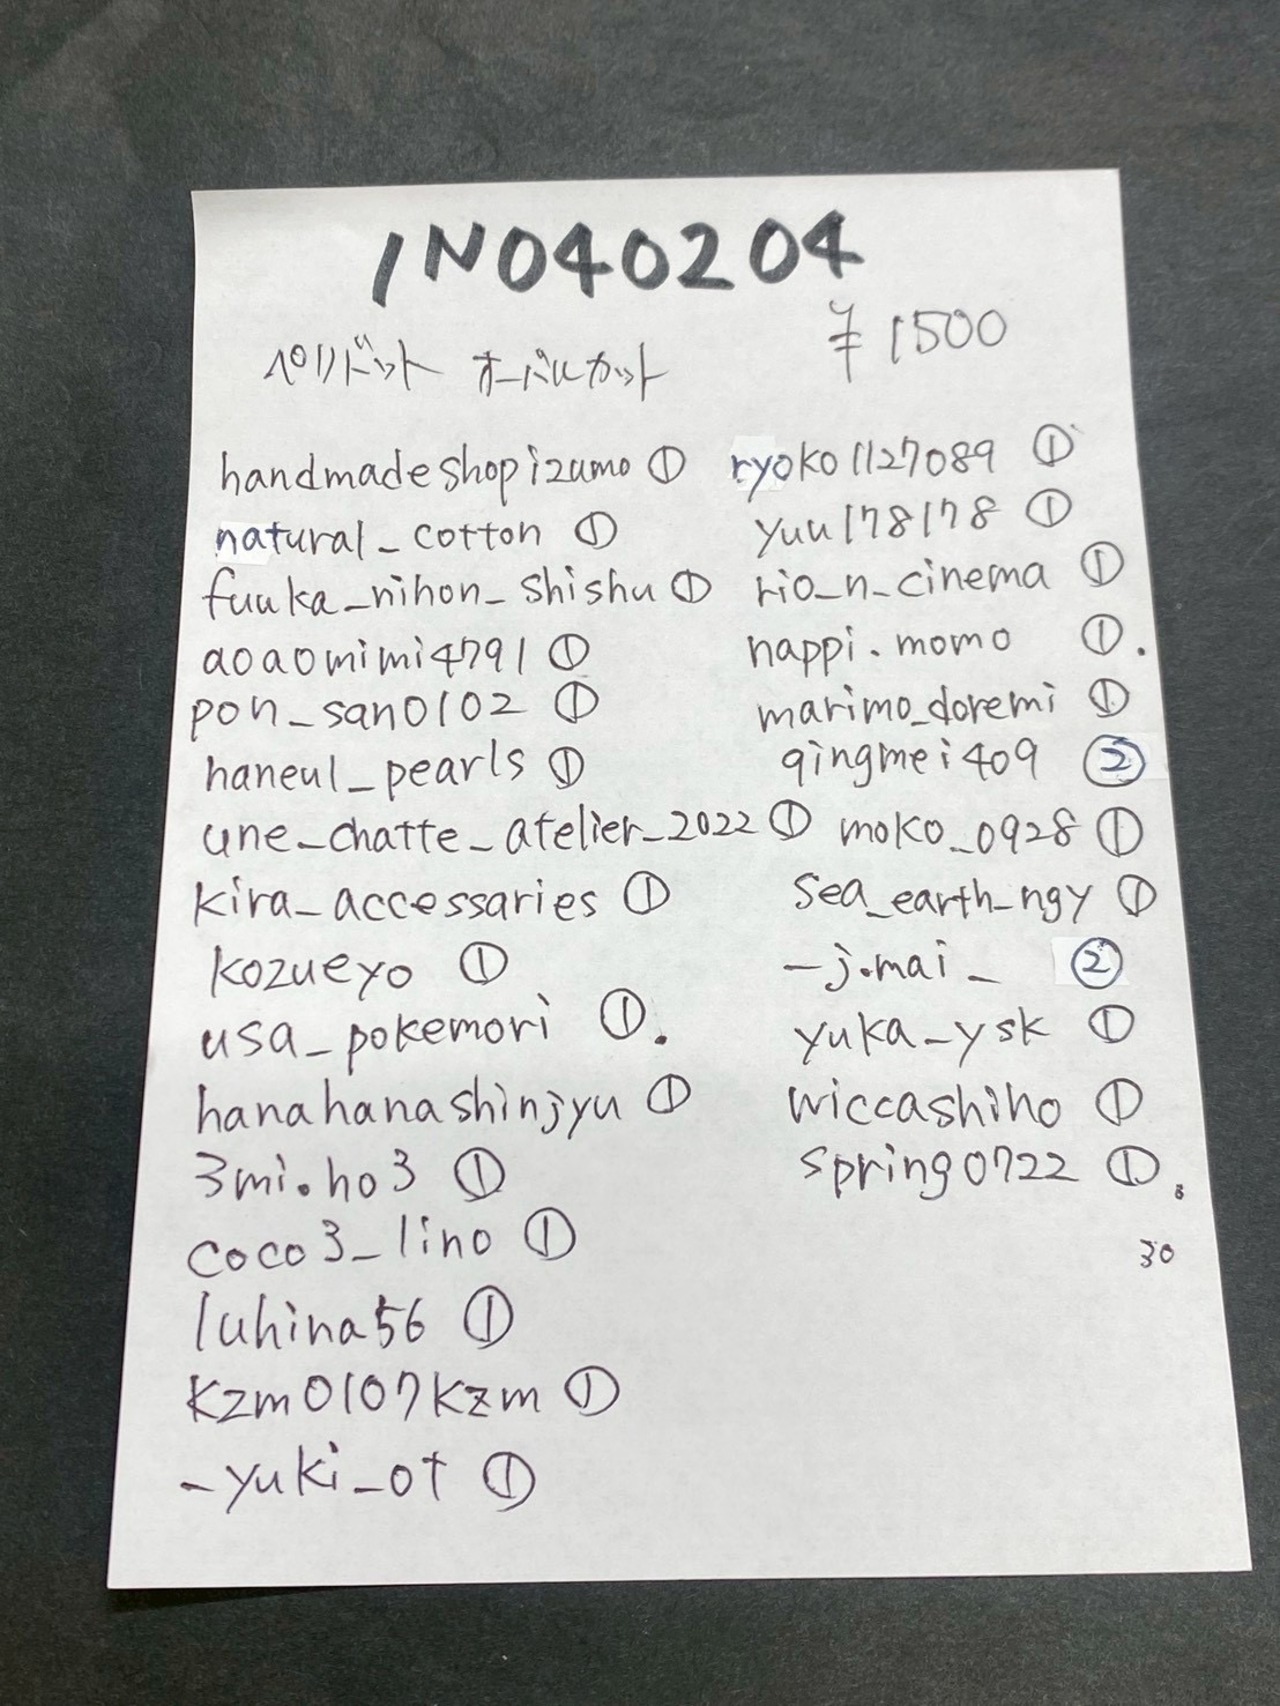 IN040204
¥1500
ペリドット オーバルカット
handmadeshopizumo ①
natural_cotton ①
fuuka_nihon_shishu ①
aoaomimi4791 ①
pon_san0102 ①
haneul_pearls ①
une_chatte_atelier_2022 ①
kira_accessaries ①
kozueyo ①
usa_pokemori ①.
hanahanashinjyu ①
3mi.ho3 ①
coco3_lino ①
luhina56 ①
kzm0107kzm ①
_yuki_ot ①
ryoko1127089 ①
yuu178178 ①
rio_n_cinema ①
nappi.momo ①.
marimo_doremi ①
qingmei409 ②
moko_0928 ①
sea_earth_ngy ①
_j.mai_ ②
yuka_ysk ①
wiccashiho ①
spring0722 ①.
30